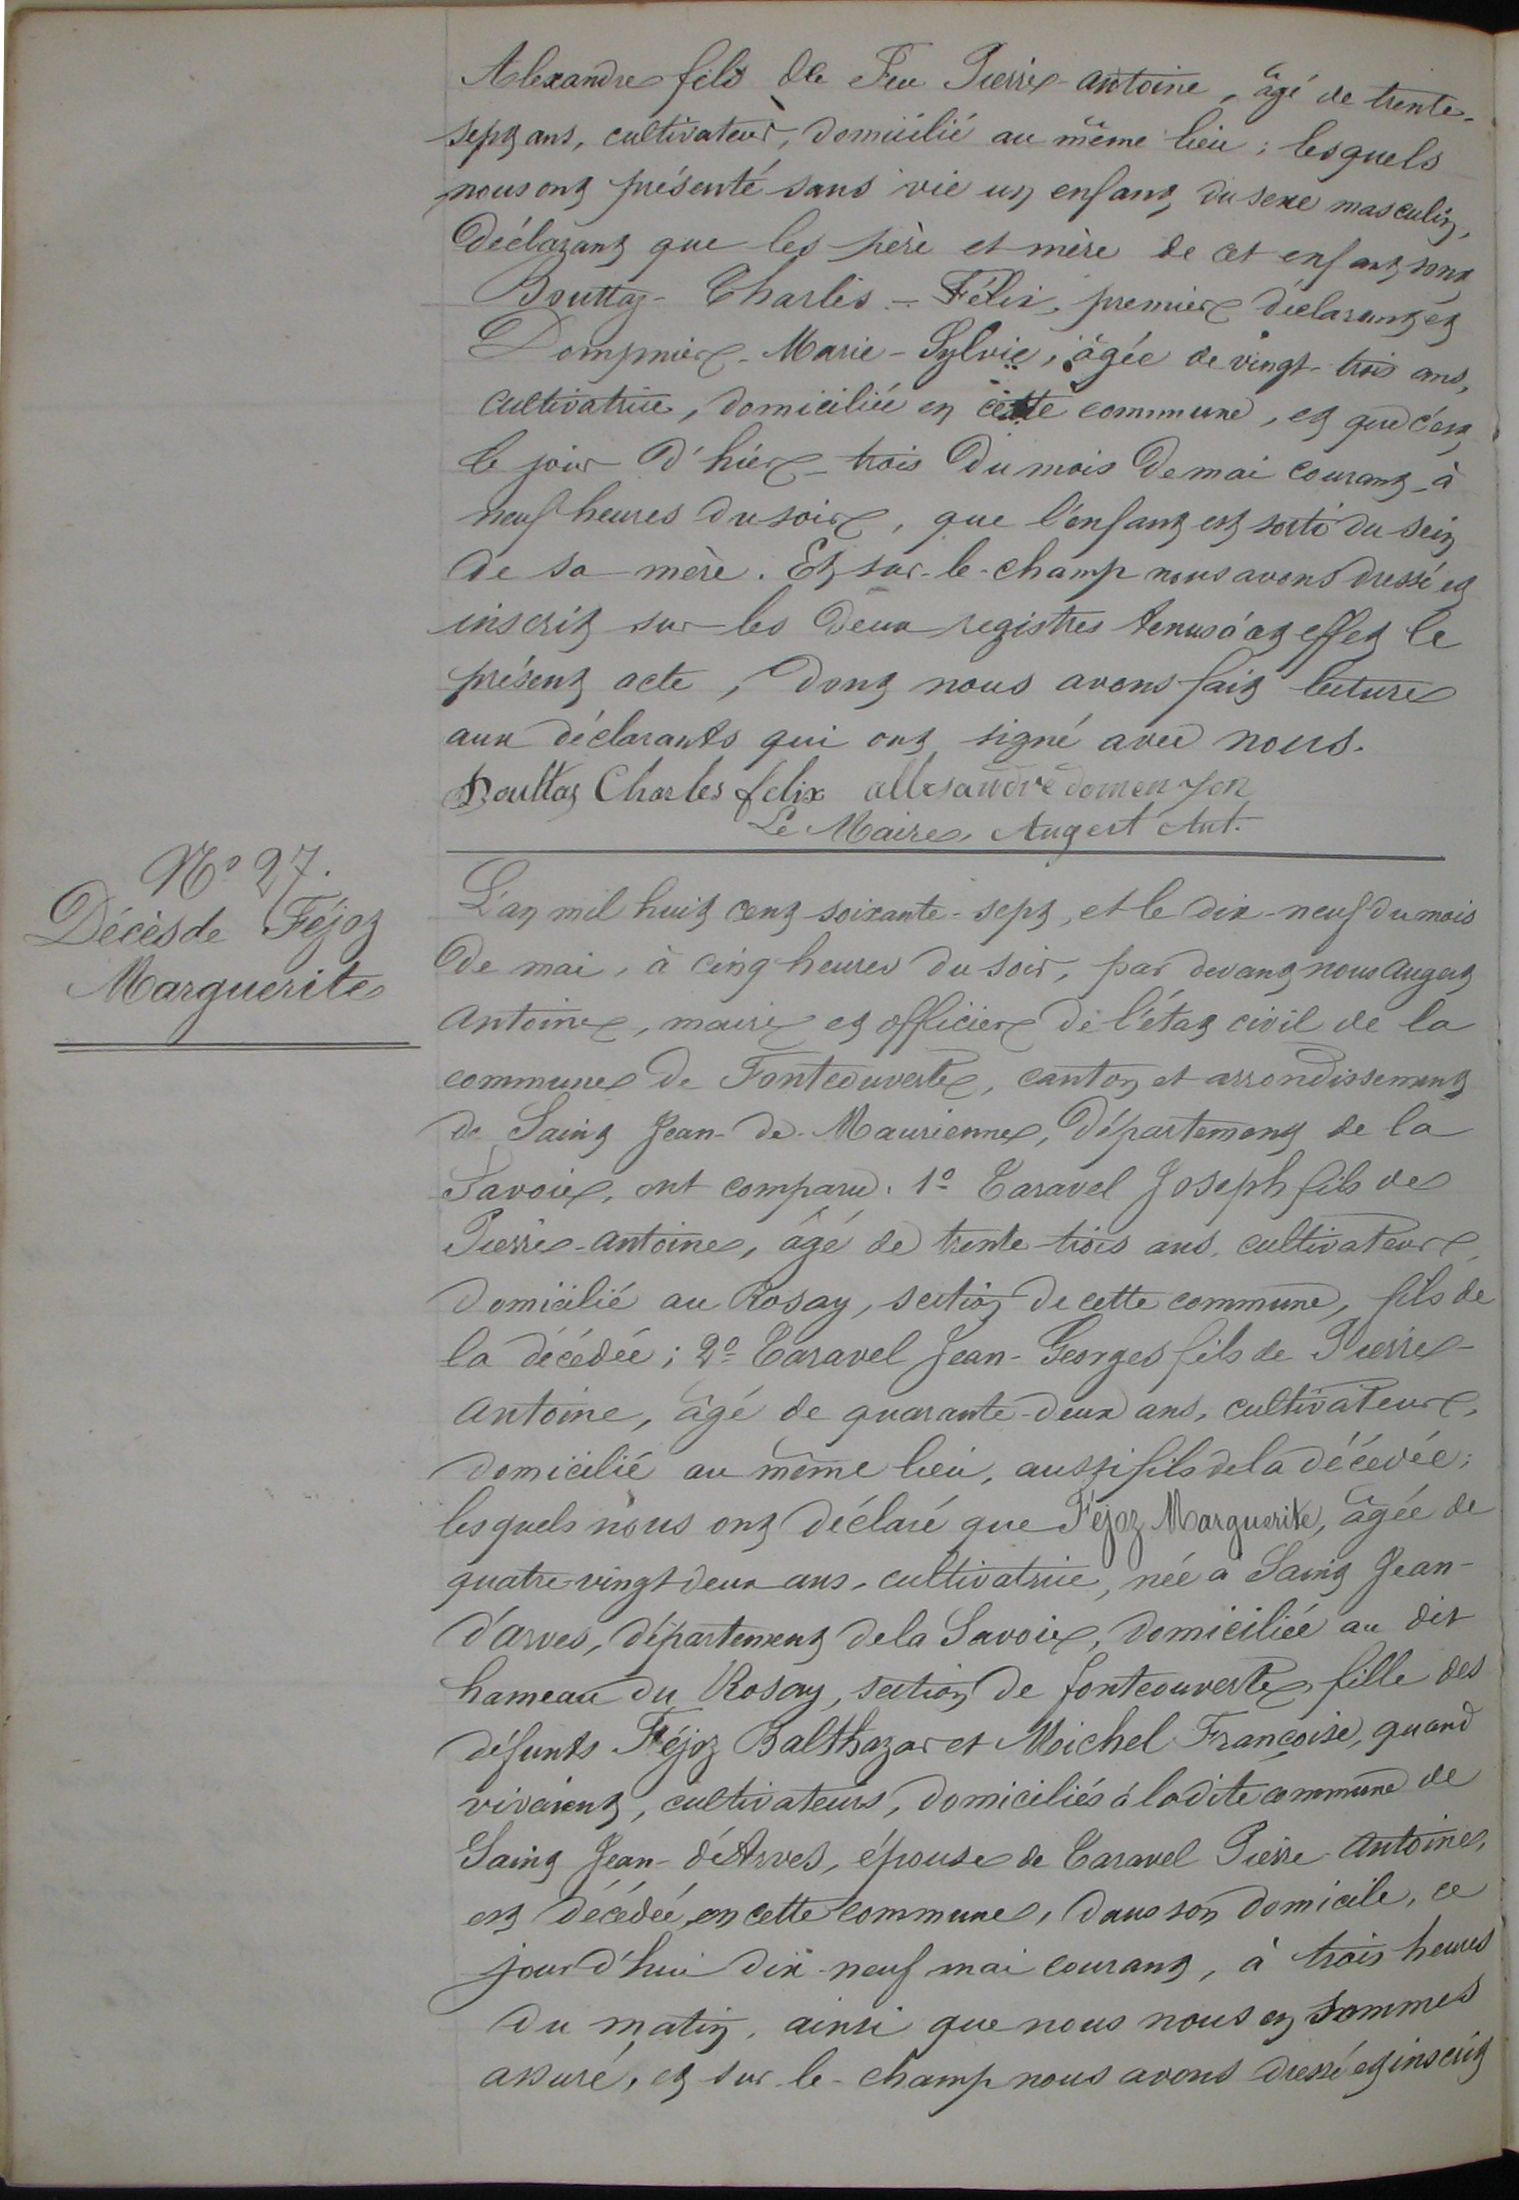 Alexandre fils de Feu Pierre-Antoine, âgé de trente-
sept ans, cultivateur, domicilié au même lieu ; lesquels
nous ont présenté sans vie un enfant du sexe masculin,
Déclarant que les père et mère de cet enfant sont
Bouttaz-Charles-Félix, premier déclarant et
Dompnier-Marie-Sylvie, âgée de vingt-trois ans,
cultivatrice, domiciliée en cette commune, et que c'est
le jour d'hier trois du mois de mai courant à
neuf heures du soir, que l'enfant est sorti du sein
de sa mère. Et sur-le-champ nous avons dressé et
inscrit sur les deux registres tenus à cet effet le
présent acte, dont nous avons fait lecture
aux déclarants qui ont signé avec nous.
Bouttaz Charles felix allesandre
Le Maire, Augert Ant.
N° 27.
Décès de Féjoz
Marguerite
L'an mil huit cent soixante-sept, et le dix-neuf du mois
de mai, à cinq heures du soir, par devant nous Augert
Antoine, maire et officier de l'état civil de la
commune de Fontcouverte, canton et arrondissement
de Saint Jean-de-Maurienne, Département de la
Savoie, ont comparu. 1° Taravel Joseph fils de
Pierre-Antoine, âgé de trente-trois ans, cultivateur,
domicilié au Rosay, section de cette commune, fils de
la décédée ; 2° Taravel Jean-Georges fils de Pierre-
Antoine, âgé de quarante-deux ans, cultivateur,
domicilié au même lieu, aussi fils de la décédée ;
lesquels nous ont déclaré que Féjoz Marguerite, âgée de
quatre-vingt deux ans, cultivatrice, née à Saint Jean-
d'Arves, département de la Savoie, domiciliée au dit
hameau du Rosay, section de fontcouverte, fille des
défunts Féjoz Balthazar et Michel Françoise, quand
vivaient, cultivateurs, domiciliés à la dite commune de
Saint Jean-d'Arves, épouse de Taravel Pierre-Antoine,
est décédée, en cette commune, dans son domicile, ce
jourd'hui dix-neuf mai courant, à trois heures
du matin, ainsi que nous nous en sommes
assuré, et sur-le-champ nous avons dressé et inscrit